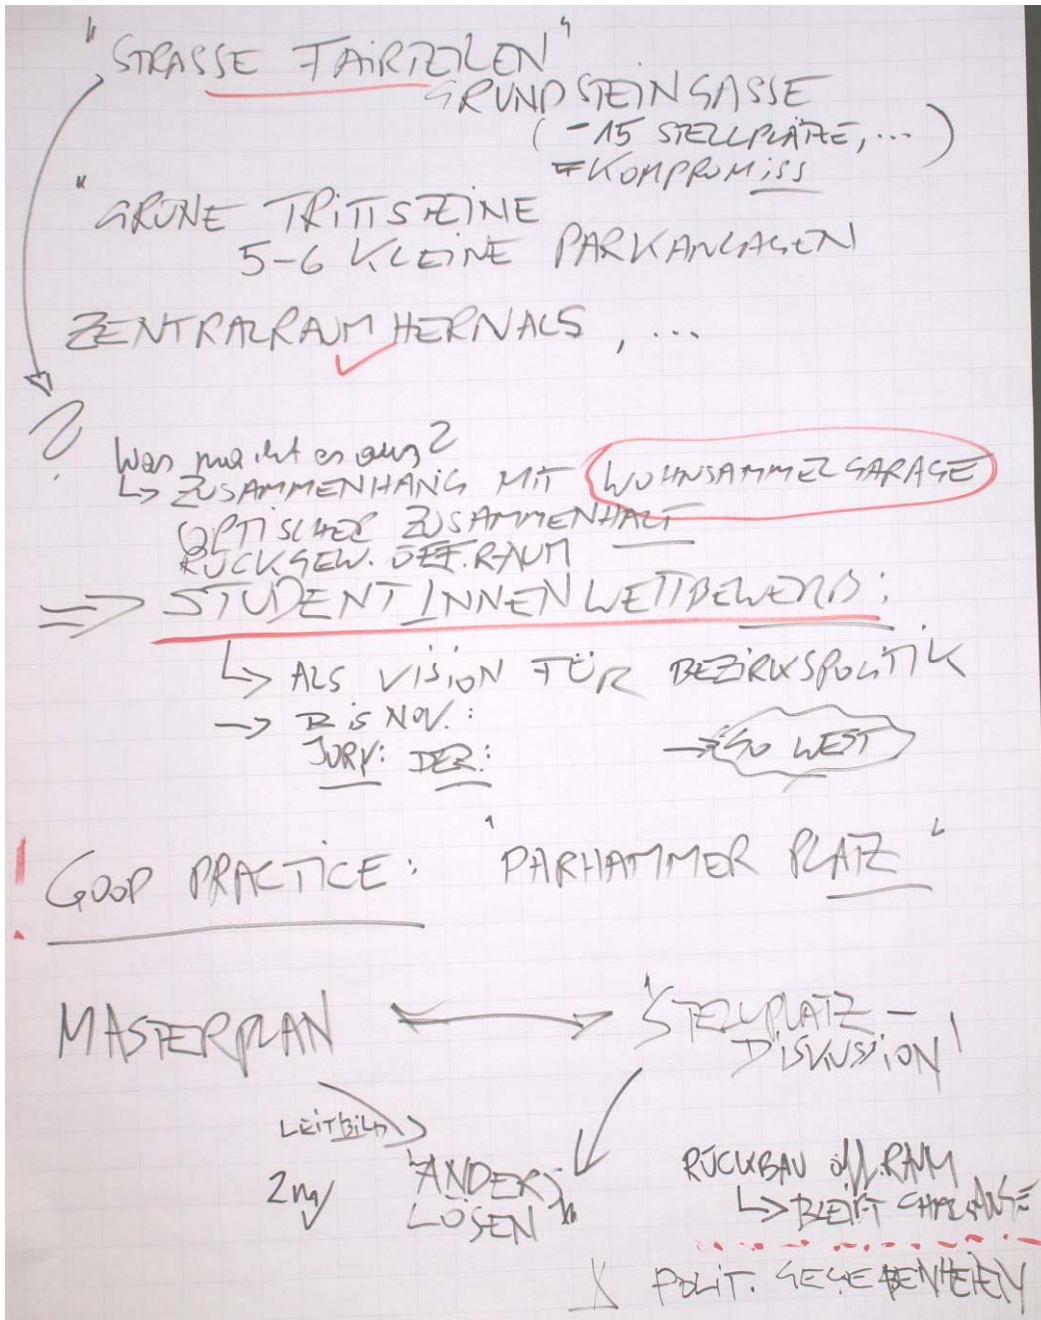 "STRASSE FAIRTEILEN"
GRUNDSTEINGASSE
(-15 STELLPLÄTZE, ...)
=KOMPROMISS
"GRÜNE TRITTSTEINE
5-6 KLEINE PARKANLAGEN
ZENTRALRAUM HERNALS, ...
?
Was macht es aus?
↳ ZUSAMMENHANG MIT WOHNSAMMELGARAGE
OPTISCHER ZUSAMMENHALT
RÜCKGEW. ÖFF. RAUM
⇒ STUDENTINNENWETTBEWERB:
↳ ALS VISION FÜR BEZIRKSPOLITIK
→ BIS NOV.:
JURY: DER: → GO WEST
! GOOD PRACTICE: "PARHAMMER PLATZ"
MASTERPLAN ↔ "STELLPLATZ-
DISKUSSION"
LEITBILD
"ANDERS
LÖSEN"
RÜCKBAU öff. RAUM
↳ BLEIBT CHALLANGE
POLIT. GEGEBENHEITEN